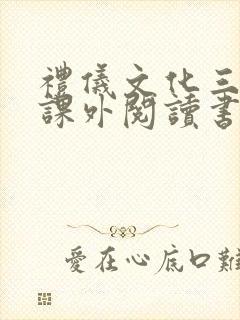 禮儀文化三
課外閱讀書
愛在心底口難